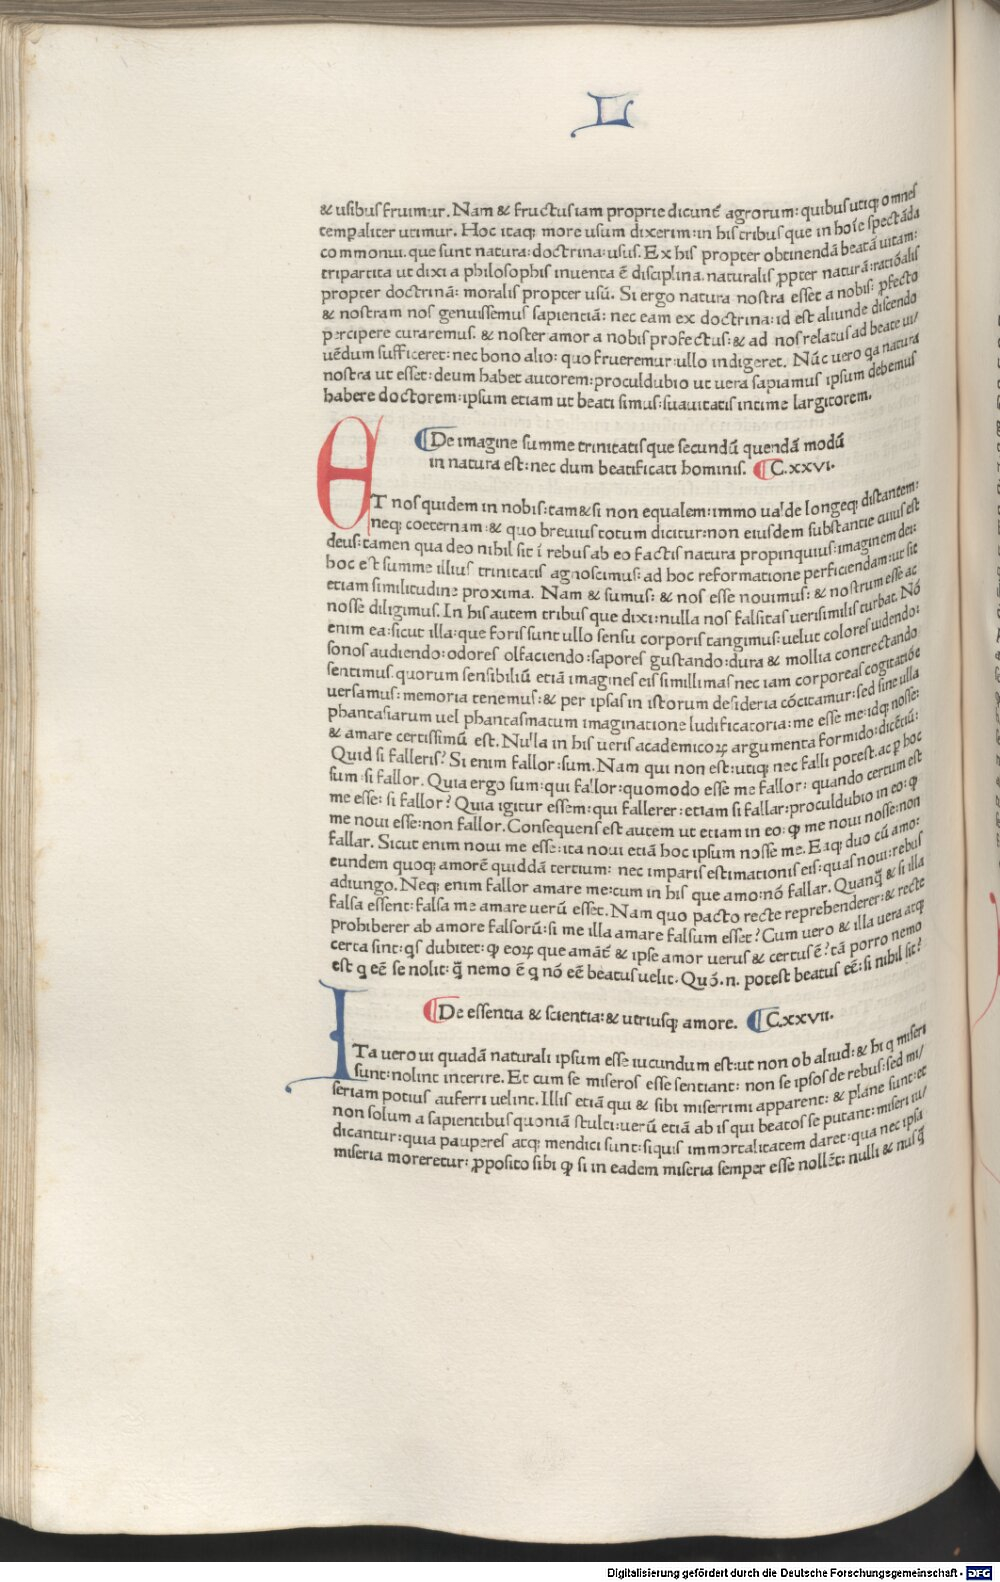 L
& usibus fruimur. Nam & fructus iam proprie dicunt᷑ agrorum: quibus utiq; omnes
temꝑaliter utimur. Hoc itaq; more usum dixerim: in his tribus que in hoīe spectāda
commonui. que sunt natura: doctrina: usus. Ex his propter obtinendā beatā uitam:
tripartita ut dixi a philosophis inuenta ē disciplina. naturalis ꝓpter naturā: ratiōalis
propter doctrinā: moralis propter usū. Si ergo natura nostra esset a nobis: ꝓfecto
& nostram nos genuissemus sapientiā: nec eam ex doctrina: id est aliunde discendo
percipere curaremus. & noster amor a nobis profectus: & ad nos relatus ad beate ui/
uēdum sufficeret: nec bono alio: quo frueremur: ullo indigeret. Nūc uero qa natura
nostra ut esset: deum habet autorem: proculdubio ut uera sapiamus ipsum debemus
habere doctorem: ipsum etiam ut beati simus: suauitatis intime largitorem.
De imagine summe trinitatis que secundū quendā modū
in natura est: nec dum beatificati hominis. C.xxvi.
ET nos quidem in nobis: tam&si non equalem: immo ualde longeq; distantem:
neq; coeternam: & quo breuius totum dicitur: non eiusdem substantie cuius est
deus: tamen qua deo nihil sit ī rebus ab eo factis natura propinquius: imaginem dei:
hoc est summe illius trinitatis agnoscimus: ad hoc reformatione perficiendam: ut sit
etiam similitudine proxima. Nam & sumus: & nos esse nouimus: & nostrum esse ac
nosse diligimus. In his autem tribus que dixi: nulla nos falsitas uerisimilis turbat. Nō
enim ea: sicut illa: que foris sunt ullo sensu corporis tangimus: uelut colores uidendo:
sonos audiendo: odores olfaciendo: sapores gustando: dura & mollia contrectando
sentimus. quorum sensibiliū etiā imagines eis simillimas nec iam corporeas cogitatiōe
uersamus: memoria tenemus: & per ipsas in istorum desideria cōcitamur: sed sine ulla
phantasiarum uel phantasmatum imaginatione ludificatoria: me esse me: idq; nosse:
& amare certissimū est. Nulla in his ueris academicoꝝ argumenta formido: dicētiū:
Quid si falleris? Si enim fallor: sum. Nam qui non est: utiq; nec falli potest. ac ꝑ hoc
sum: si fallor. Quia ergo sum: qui fallor: quomodo esse me fallor: quando certum est
me esse: si fallor? Quia igitur essem: qui fallerer: etiam si fallar: proculdubio in eo: ꝙ
me noui esse: non fallor. Consequens est autem ut etiam in eo: ꝙ me noui nosse: non
fallar. Sicut enim noui me esse: ita noui etiā hoc ipsum nosse me. Eaq; duo cū amo:
eundem quoq; amorē quiddā tertium: nec imparis estimationis eis: quas noui: rebus
adiungo. Neq; enim fallor amare me: cum in his que amo: nō fallar. Quanq̄ & si illa
falsa essent: falsa me amare uerū esset. Nam quo pacto recte reprehenderer: & recte
prohiberer ab amore falsorū: si me illa amare falsum esset? Cum uero & illa uera atq;
certa sint: qs dubitet: ꝙ eoꝝ que amāt᷑ & ipse amor uerus & certus ē? tā porro nemo
est q eē se nolit: q̄ nemo ē q nō eē beatus uelit. Quō.n. potest beatus eē: si nihil sit?
De essentia & scientia: & utriusq; amore. C.xxvii.
ITa uero ui quadā naturali ipsum esse iucundum est: ut non ob aliud: & hi q miseri
sunt: nolint interire. Et cum se miseros esse sentiant: non se ipsos de rebus: sed mi/
seriam potius auferri uelint. Illis etiā qui & sibi miserrimi apparent: & plane sunt: et
non solum a sapientibus quoniā stulti: uerū etiā ab is qui beatos se putant: miseri iu/
dicantur: quia pauperes atq; mendici sunt: siquis immortalitatem daret: qua nec ipsa
miseria moreretur: ꝓposito sibi ꝙ si in eadem miseria semper esse nollēt: nulli & nusq̄
Digitalisierung gefördert durch die Deutsche Forschungsgemeinschaft - DFG